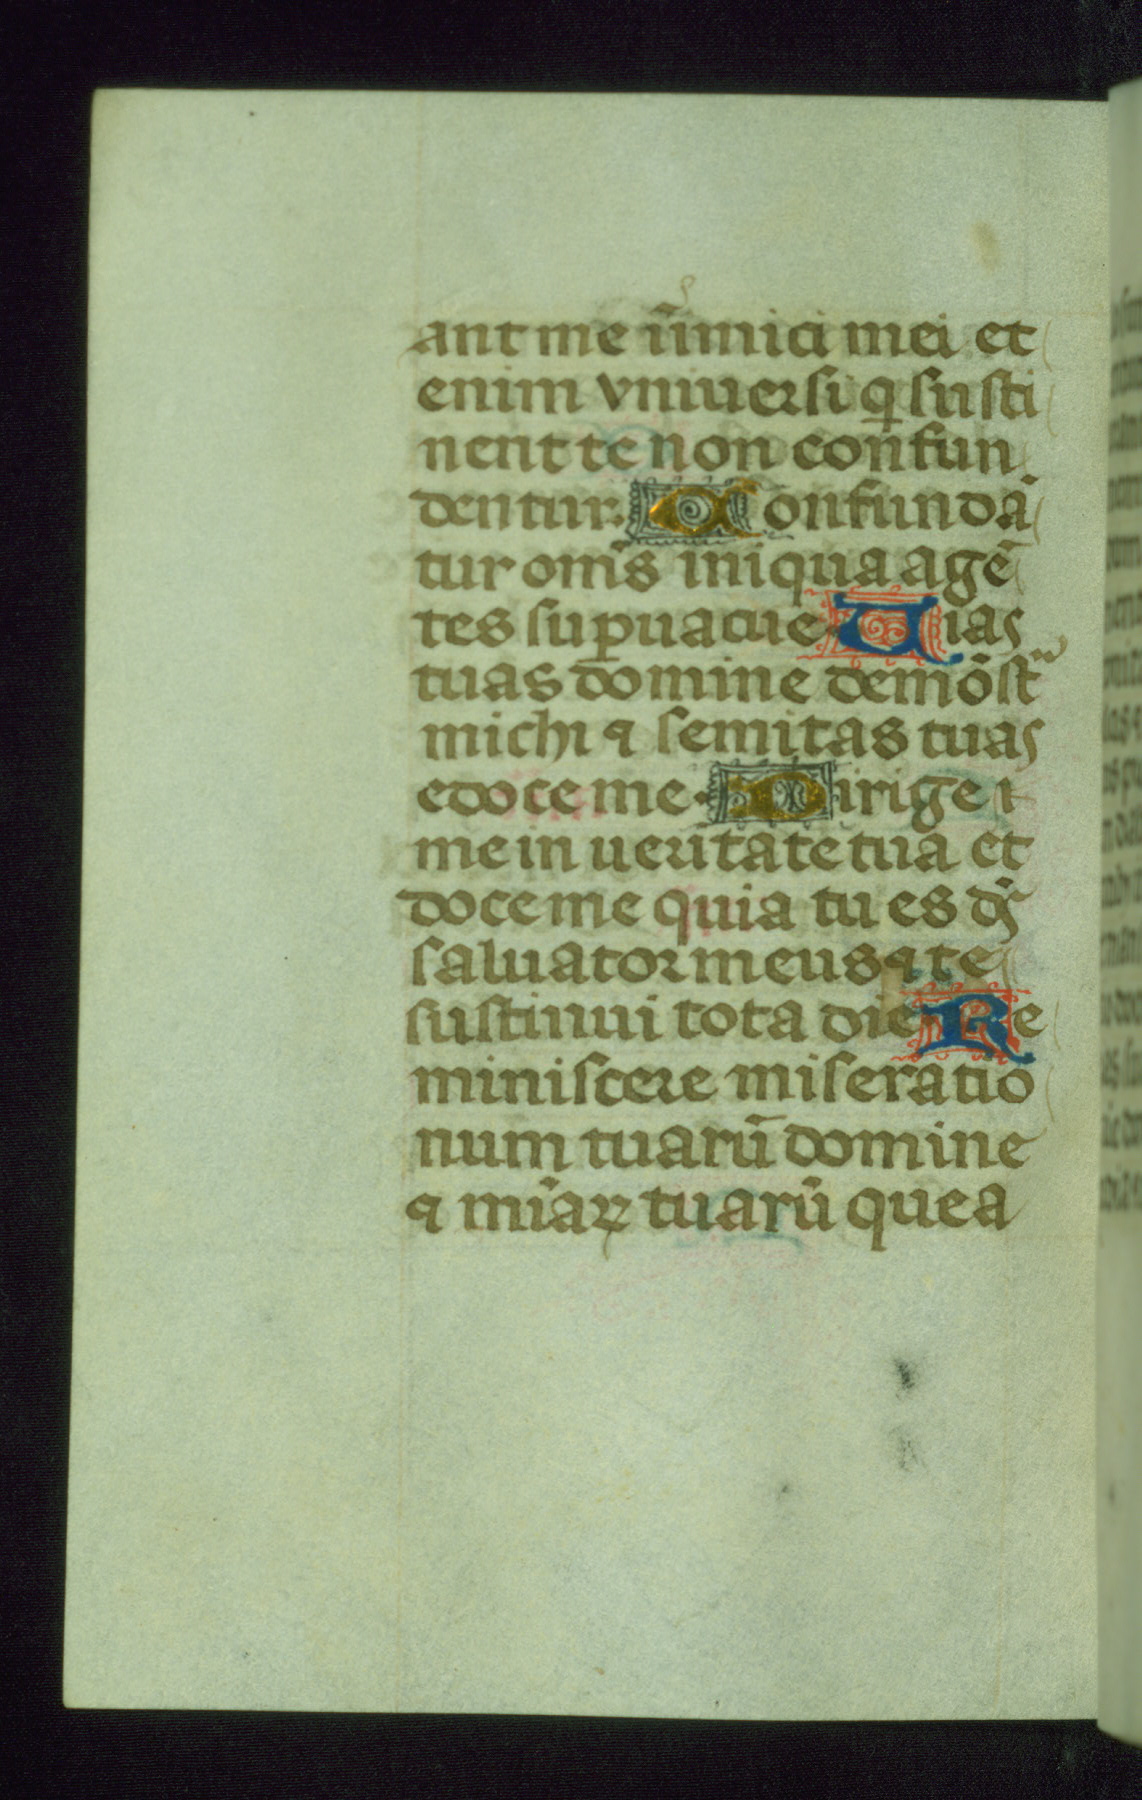 ant me iīmici mei et
enim vniuersi q̄ susti
nent te non confun
dentur. Confundā
tur om̄s iniqua agē
tes suꝑuacue Uias
tuas domine demōstᷓ
michi ⁊ semitas tuas
edoce me. Dirige
me in ueritate tua et
doce me quia tu es ds̄
saluator meus ⁊ te
sustinui tota die Re
miniscere miseratio
num tuarū domine
⁊ mīaꝝ tuarū que a